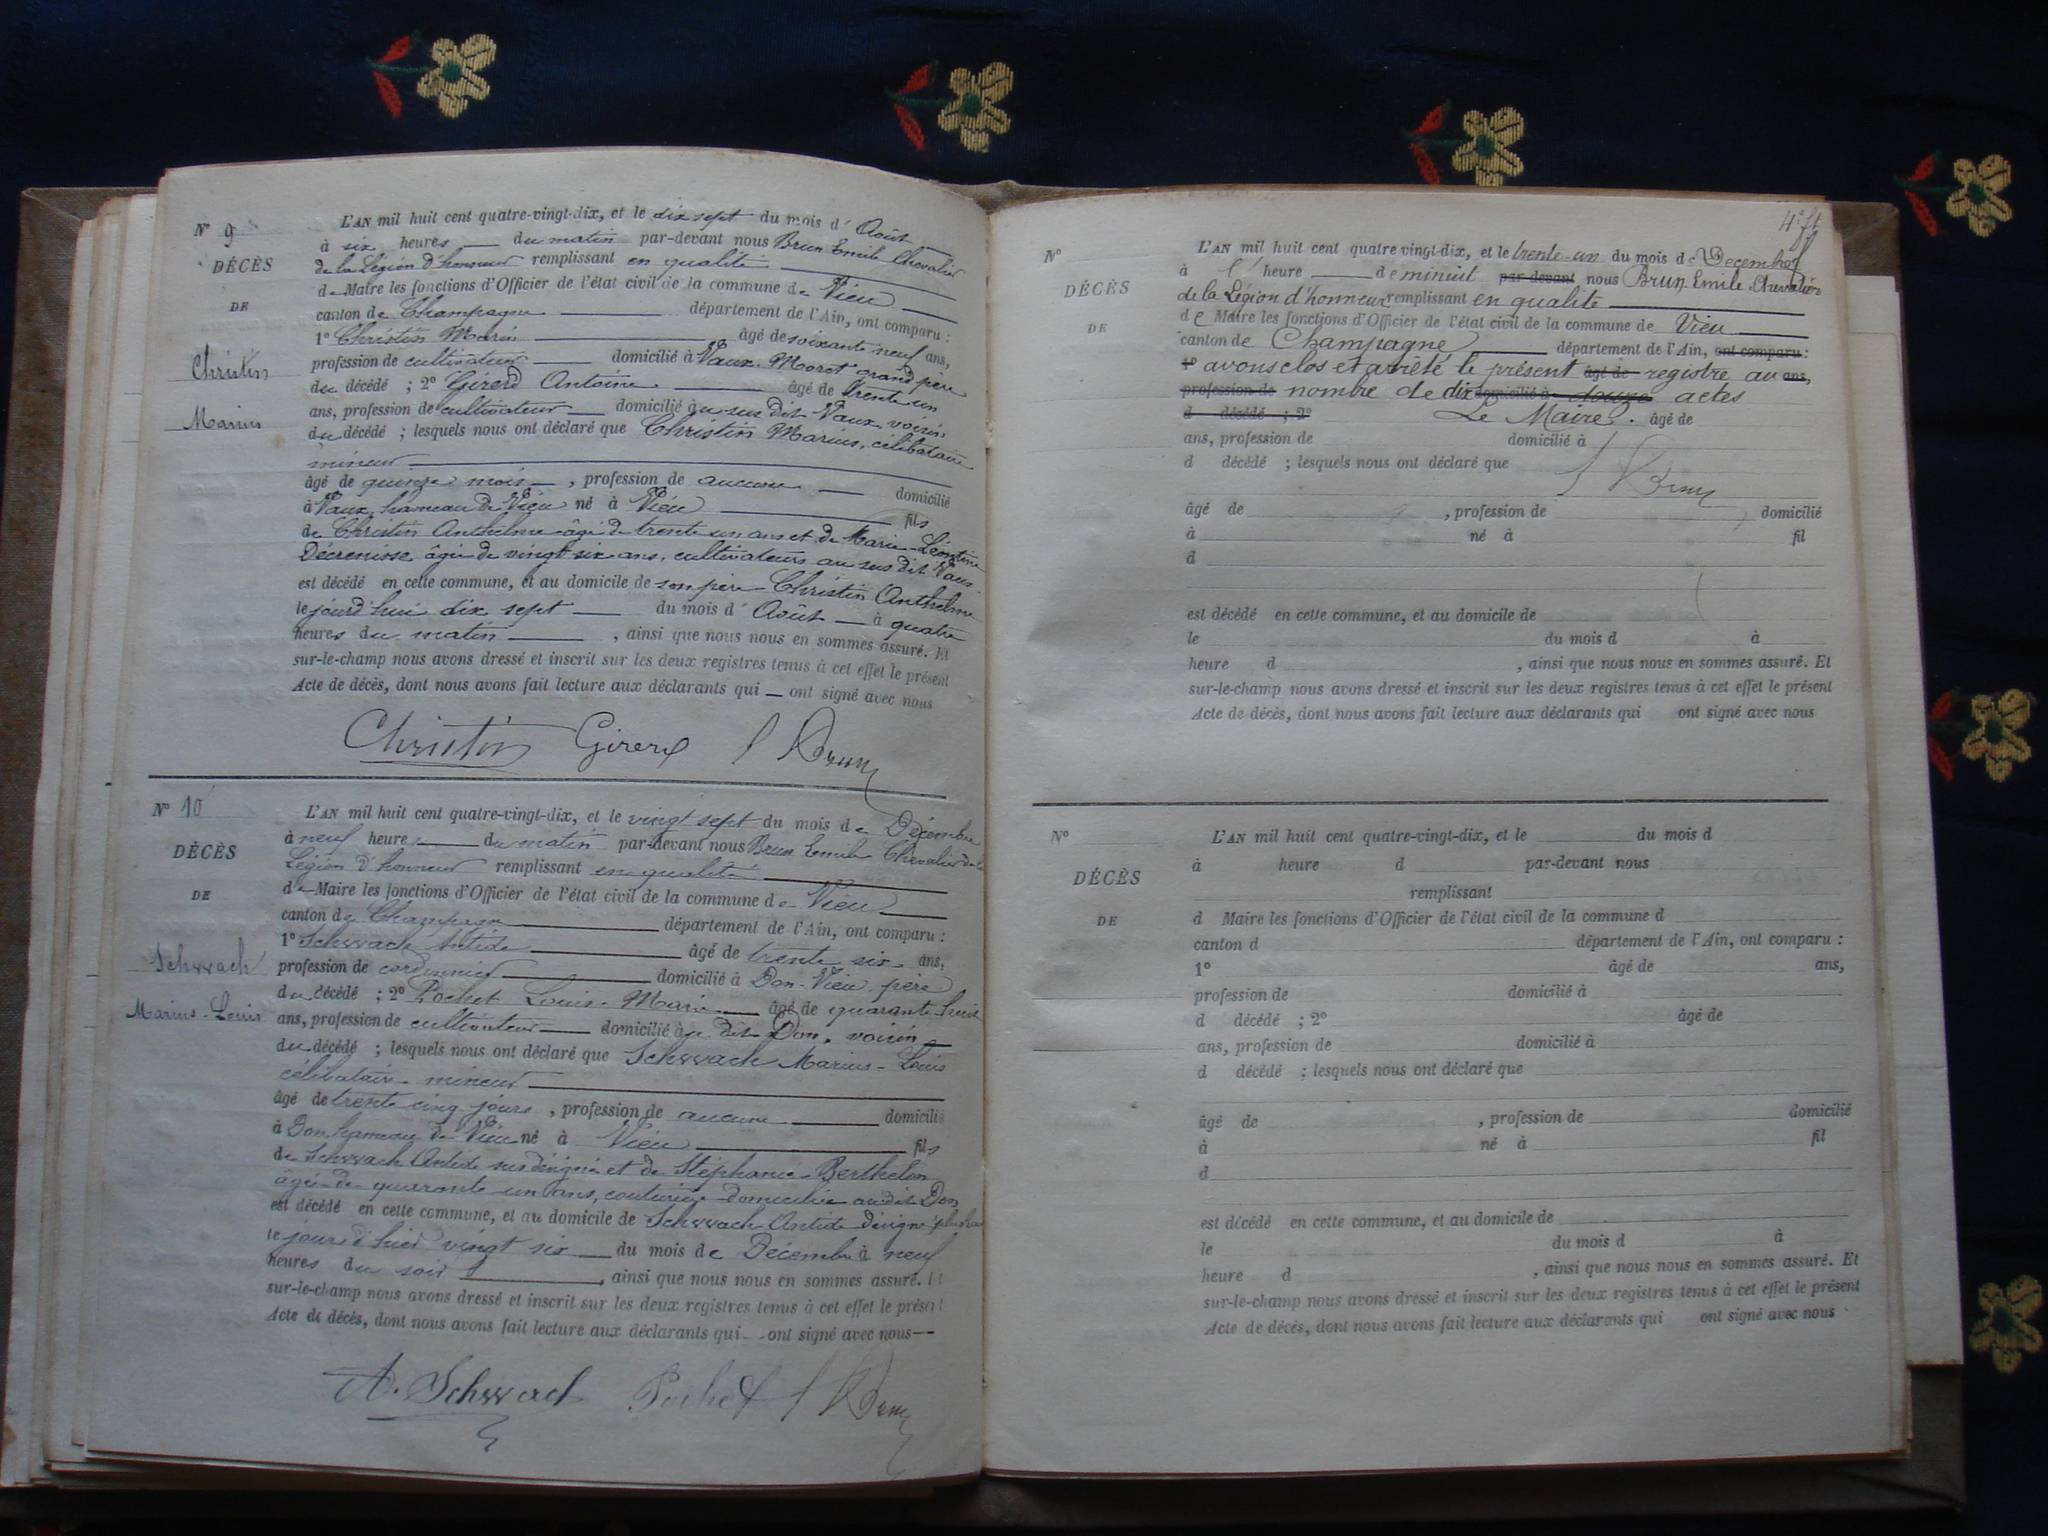 N° 9
DÉCÈS
DE
Christin
Marius
L'AN mil huit cent quatre-vingt-dix, et le dix sept du mois d' Août
à six heures du matin par-devant nous Brun Emile Chevalier
de la Légion d'honneur remplissant en qualité
de Maire les fonctions d'Officier de l'état civil de la commune de Vieu
canton de Champagne département de l'Ain, ont comparu :
1° Christin Marin âgé de soixante neuf ans,
profession de cultivateur domicilié à Vaux-Moret grand père
du décédé ; 2° Girerd Antoine âgé de trente un
ans, profession de cultivateur domicilié au sus dit Vaux, voisin
du décédé ; lesquels nous ont déclaré que Christin Marius, célibataire
mineur
âgé de quinze mois , profession de aucune domicilié
à Vaux, hameau de Vieu né à Vieu fils
de Christin Anthelme âgé de trente un ans et de Marie-Léontine
Décrenisse âgée de vingt six ans, cultivateurs au sus dit Vaux
est décédé en cette commune, et au domicile de son père Christin Anthelme
le jourd'hui dix sept du mois d' Août à quatre
heures du matin , ainsi que nous nous en sommes assuré. Et
sur-le-champ nous avons dressé et inscrit sur les deux registres tenus à cet effet le présent
Acte de décès, dont nous avons fait lecture aux déclarants qui ont signé avec nous
Christin Girerd Brun
N° 10
DÉCÈS
DE
Schwach
Marius-Louis
L'AN mil huit cent quatre-vingt-dix, et le vingt sept du mois de Décembre
à neuf heures du matin par-devant nous Brun Emile Chevalier de la
Légion d'honneur remplissant en qualité
de Maire les fonctions d'Officier de l'état civil de la commune de Vieu
canton de Champagne département de l'Ain, ont comparu :
1° Schwach Antide âgé de trente six ans,
profession de cordonnier domicilié à Don-Vieu, père
du décédé ; 2° Pochet Louis-Marie âgé de quarante-huit
ans, profession de cultivateur domicilié au dit Don, voisin
du décédé ; lesquels nous ont déclaré que Schwach Marius-Louis
célibataire mineur
âgé de trente cinq jours , profession de aucune domicilié
à Don hameau de Vieu né à Vieu fils
de Schwach Antide sus désigné et de Stéphanie Berthelon
âgée de quarante un ans, couturière domiciliée au dit Don
est décédé en cette commune, et au domicile de Schwach Antide désigné plus haut
le jour d'hier vingt six du mois de Décembre à neuf
heures du soir , ainsi que nous nous en sommes assuré. Et
sur-le-champ nous avons dressé et inscrit sur les deux registres tenus à cet effet le présent
Acte de décès, dont nous avons fait lecture aux déclarants qui ont signé avec nous
A. Schwach Pochet Brun
N°
DÉCÈS
DE
L'AN mil huit cent quatre vingt-dix, et le trente-un du mois de Décembre
à heure de minuit par-devant nous Brun Emile Chevalier
de la Légion d'honneur remplissant en qualité
de Maire les fonctions d'Officier de l'état civil de la commune de Vieu
canton de Champagne département de l'Ain, ont comparu :
1° avons clos et arrêté le présent âgé de registre au ans,
profession de nombre de dix domicilié à douze actes
d décédé ; 2° Le Maire. âgé de
ans, profession de domicilié à
d décédé ; lesquels nous ont déclaré que
Brun
âgé de , profession de domicilié
à né à fil
d
est décédé en cette commune, et au domicile de
le du mois d à
heure d , ainsi que nous nous en sommes assuré. Et
sur-le-champ nous avons dressé et inscrit sur les deux registres tenus à cet effet le présent
Acte de décès, dont nous avons fait lecture aux déclarants qui ont signé avec nous
N°
DÉCÈS
DE
L'AN mil huit cent quatre-vingt-dix, et le du mois d
à heure d par-devant nous
remplissant
d Maire les fonctions d'Officier de l'état civil de la commune d
canton d département de l'Ain, ont comparu :
1° âgé de ans,
profession de domicilié à
d décédé ; 2° âgé de
ans, profession de domicilié à
d décédé ; lesquels nous ont déclaré que
âgé de , profession de domicilié
à né à fil
d
est décédé en cette commune, et au domicile de
le du mois d à
heure d , ainsi que nous nous en sommes assuré. Et
sur-le-champ nous avons dressé et inscrit sur les deux registres tenus à cet effet le présent
Acte de décès, dont nous avons fait lecture aux déclarants qui ont signé avec nous